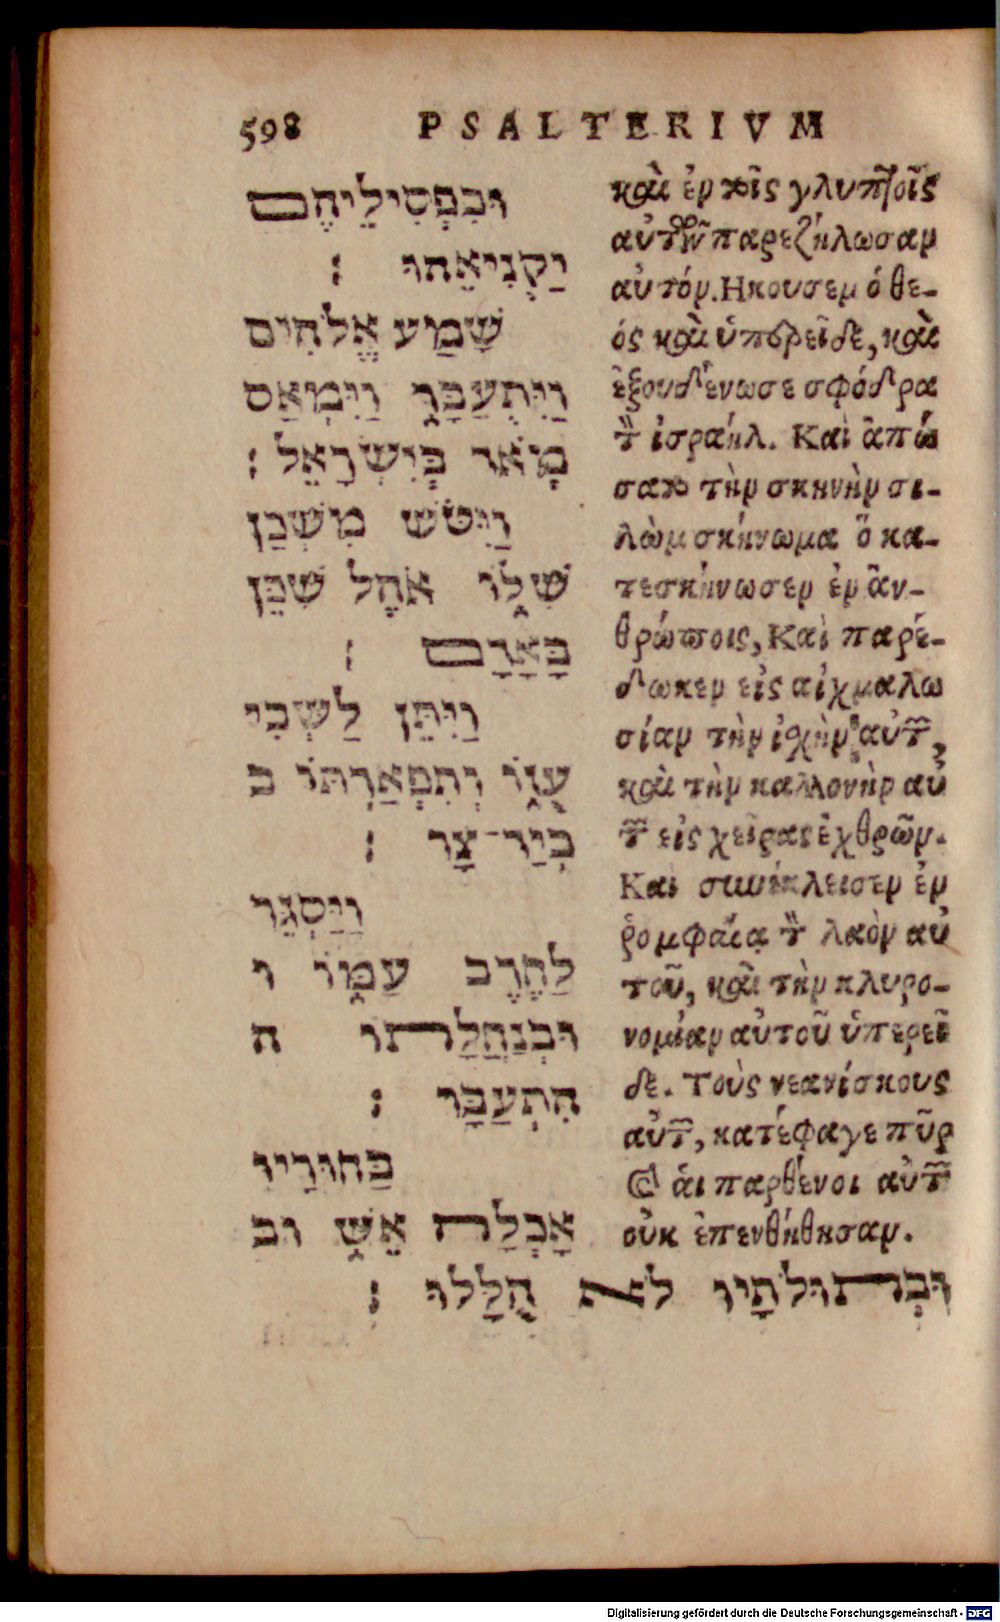 598 PSALTERIVM
וּבִפְסִילֵיהֶם
יַקְנִיאֵהוּ :
שָׁמַע אֱלֹהִים
וַיִּתְעַבָּר וַיִּמְאַס
מְאֹד בְּיִשְׂרָאֵל :
וַיִּטֹּשׁ מִשְׁכַּן
שִׁלוֹ אֹהֶל שִׁכֵּן
בָּאָדָם :
וַיִּתֵּן לַשְׁבִי
עֻזּוֹ וְתִפְאַרְתּוֹ ב
בְיַד־צָר :
וַיַּסְגֵּר
לַחֶרֶב עַמּוֹ ו
וּבְנַחֲלָתוֹ ה
הִתְעַבָּר :
בַּחוּרָיו
אָכְלָה אֵשׁ וּב
וּבְתוּלֹתָיו לֹא הֻלָּלוּ :
καὶ ἐν τοῖς γλυπτοῖς
αὐτῶν παρεζήλωσαν
αὐτόν. Ηκουσεν ὁ θε-
ός καὶ ὑπερεῖδε, καὶ
ἐξουδένωσε σφόδρα
τὸν ἰσραήλ. Καὶ ἀπώ
σατο τὴν σκηνὴν σι-
λὼμ σκήνωμα ὃ κα-
τεσκήνωσεν ἐν ἀν-
θρώποις, Καὶ παρέ-
δωκεν εἰς αἰχμαλω
σίαν τὴν ἰχὴν αὐτῶν,
καὶ τὴν καλλονὴν αὐ
τῶν εἰς χεῖρας ἐχθρῶν.
Και συνέκλεισεν ἐν
ῥομφαίᾳ τὸν λαὸν αὐ
τοῦ, καὶ τὴν κλυρο-
νομίαν αὐτοῦ ὑπερεῖ
δε. Τοὺς νεανίσκους
αὐτῶν, κατέφαγε πῦρ
καὶ ἁι παρθένοι αὐτῶν
οὐκ ἐπενθήθησαν.
Digitalisierung gefördert durch die Deutsche Forschungsgemeinschaft - DFG